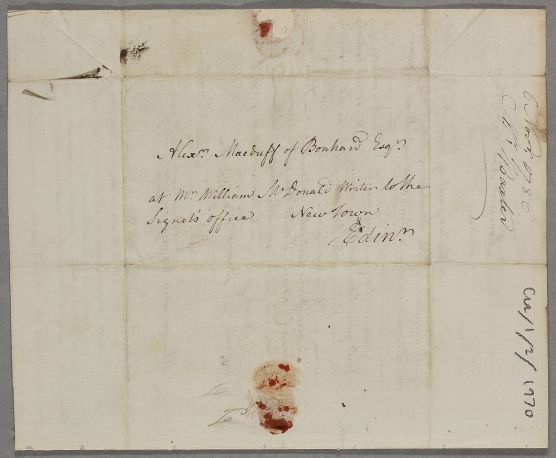 Alexr. Macduff of Bonhard Esqr.
at Mr. William McDonald Writer to the
Signet's office New Town
Edinr.
6 1780
Cu/1/2/1970